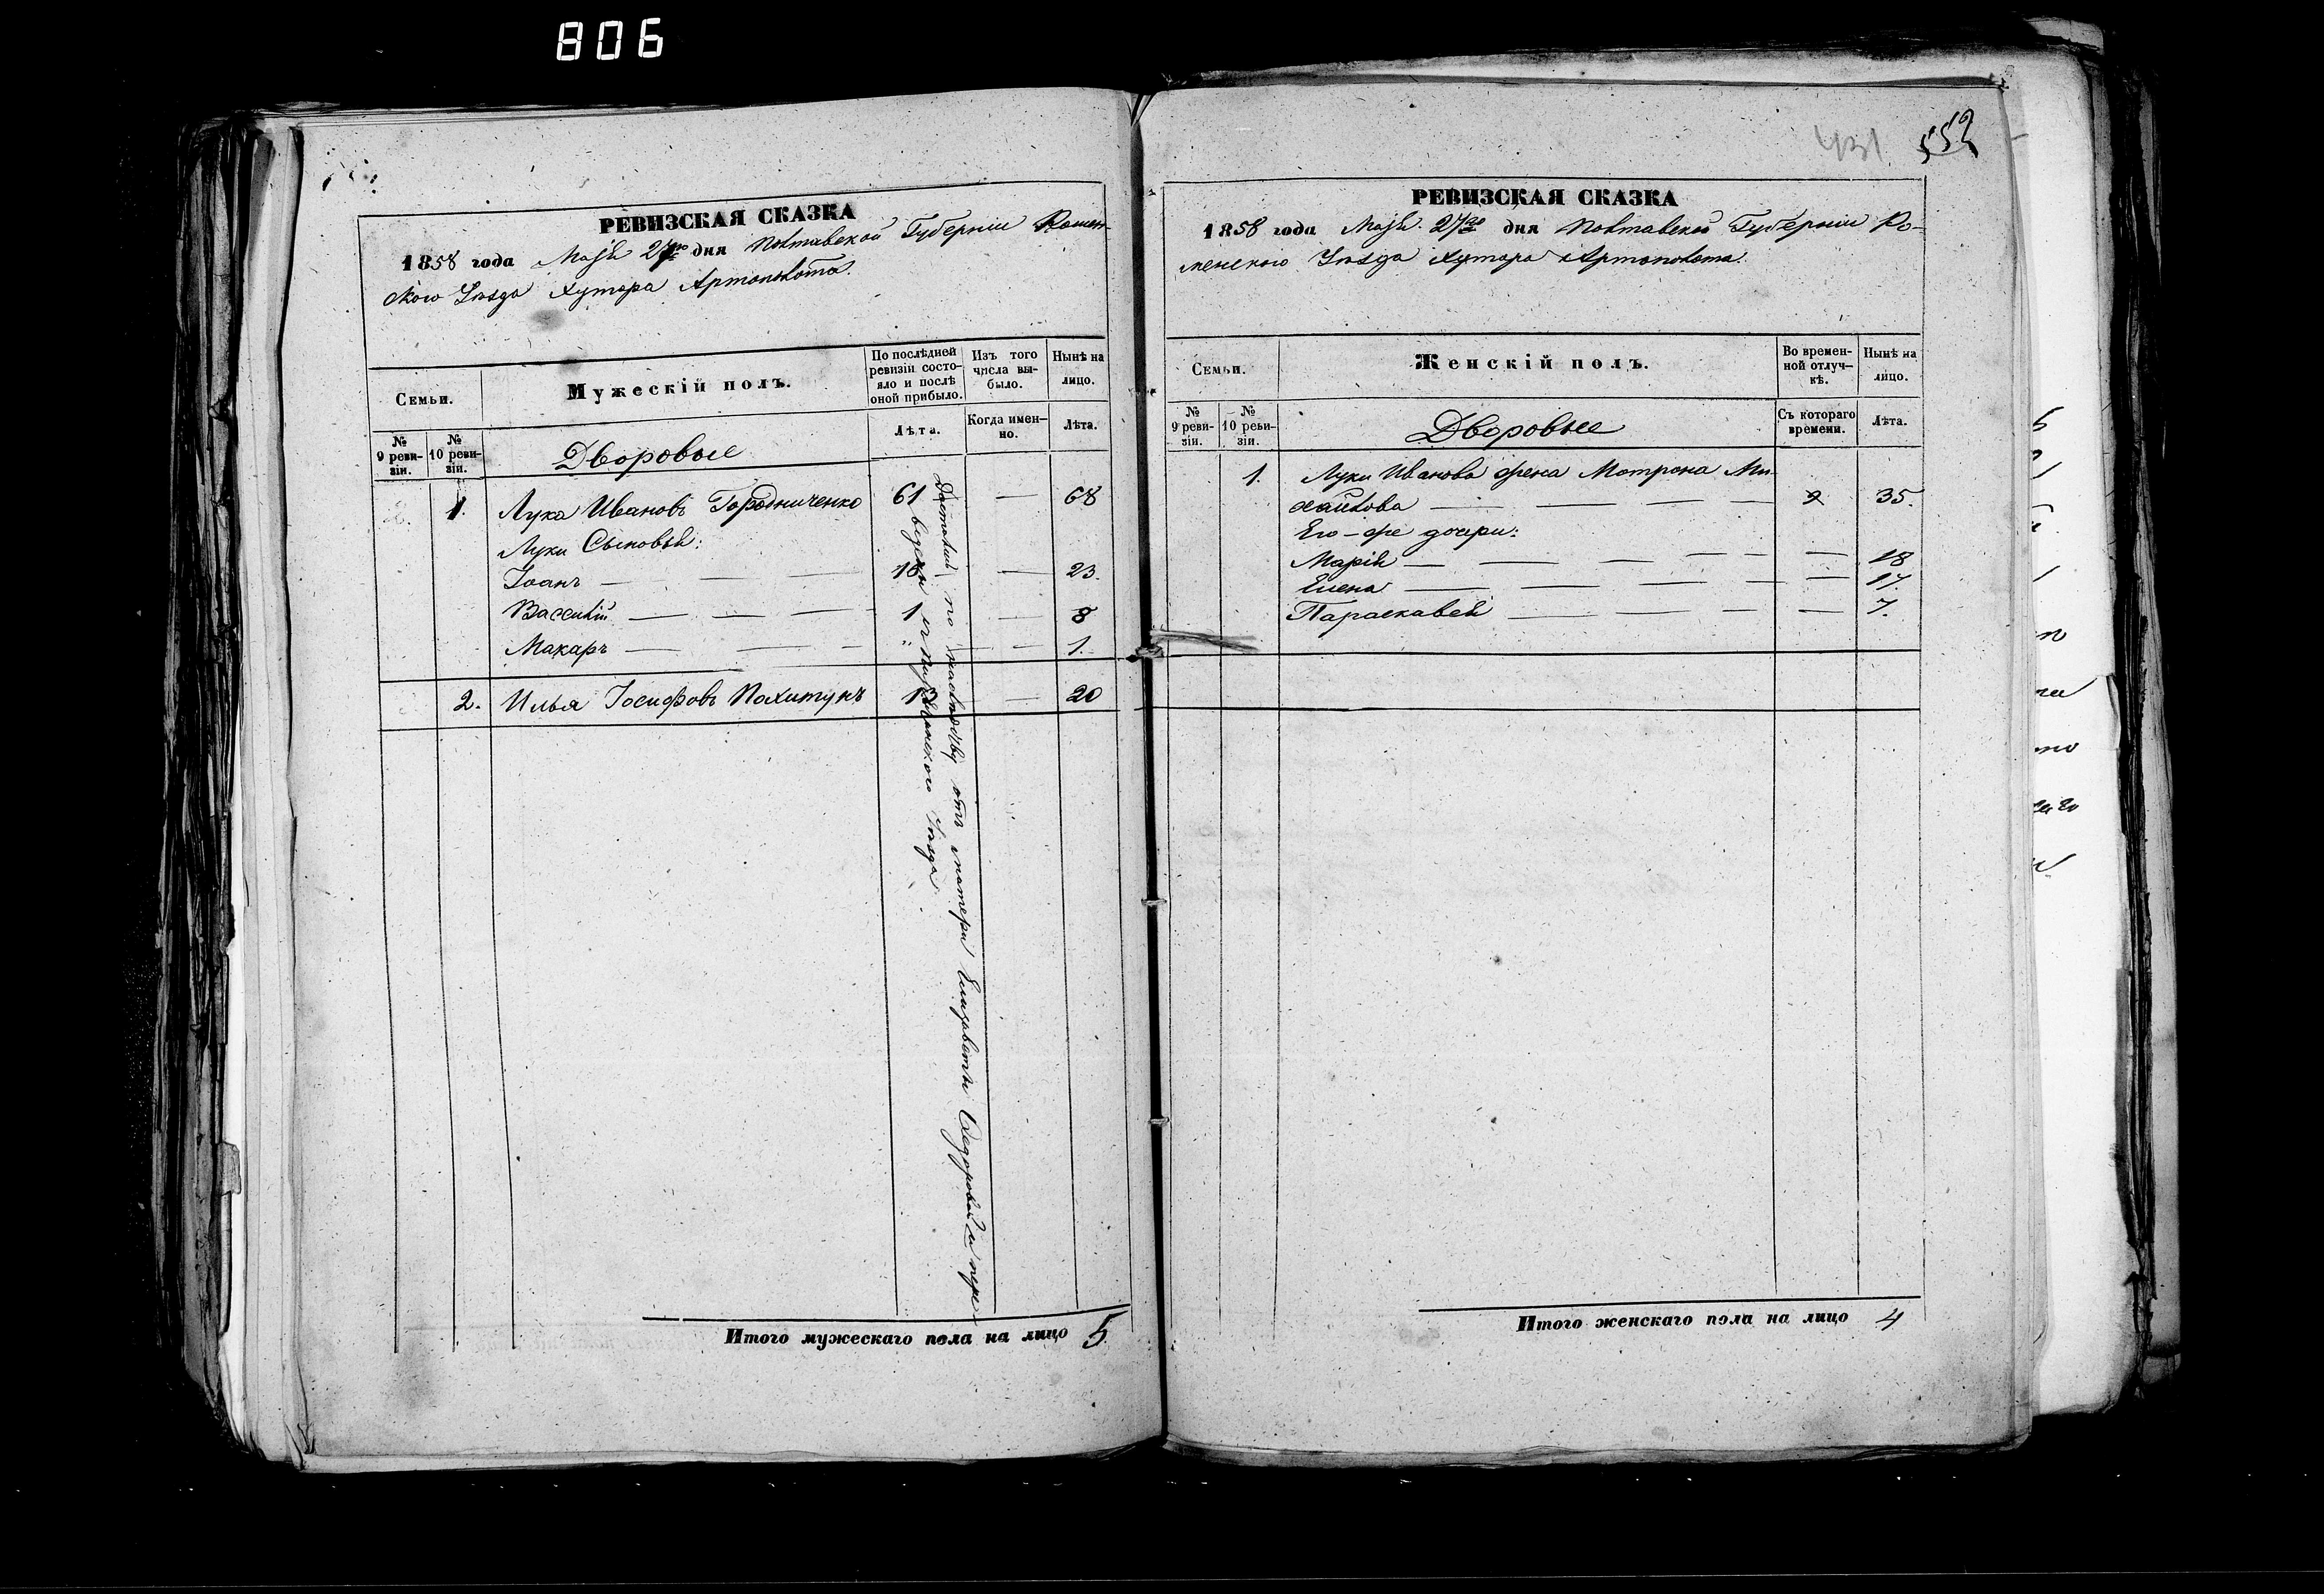 806
РЕВИЗСКАЯ СКАЗКА
1858 года Маія 27го дня Полтавской Губерніи Ромен-
ского Уѣзда Хутора Артополота.
Семьи.
Мужескій полъ.
По послѣдней ревизіи состояло и послѣ оной прибыло.
Изъ того числа выбыло.
Нынѣ на лицо.
№ 9 ревизіи.
№ 10 ревизіи.
Дворовые
Лѣта.
Когда именно.
Лѣта.
1. Лука Ивановъ Городниченко 61 — 68
Луки Сыновья:
Іоанъ — — — 16 — 23.
Василій — — — 1 — 8
Макаръ — — — " — 1.
2. Илья Іосифовъ Похитунъ — 20
Доставшій по наслѣдству отъ матери Елизаветы Федоровой и пере-
ведены с Пирятинского Уѣзда.
Итого мужескаго пола на лицо 5
431 552
РЕВИЗСКАЯ СКАЗКА
1858 года Маія 27го дня Полтавской Губерніи Ро-
менского Уѣзда Хутора Артополота.
Семьи.
Женскій полъ.
Во временной отлучкѣ.
Нынѣ на лицо.
№ 9 ревизіи.
№ 10 ревизіи.
Дворовые
Съ котораго времени.
Лѣта.
1. Луки Иванова жена Мотрона Ми-
хайлова — — — — 35.
Его-же дочери:
Марія — — — — — 18
Елена — — — — — 17.
Параскавея — — — — 7.
Итого женскаго пола на лицо 4